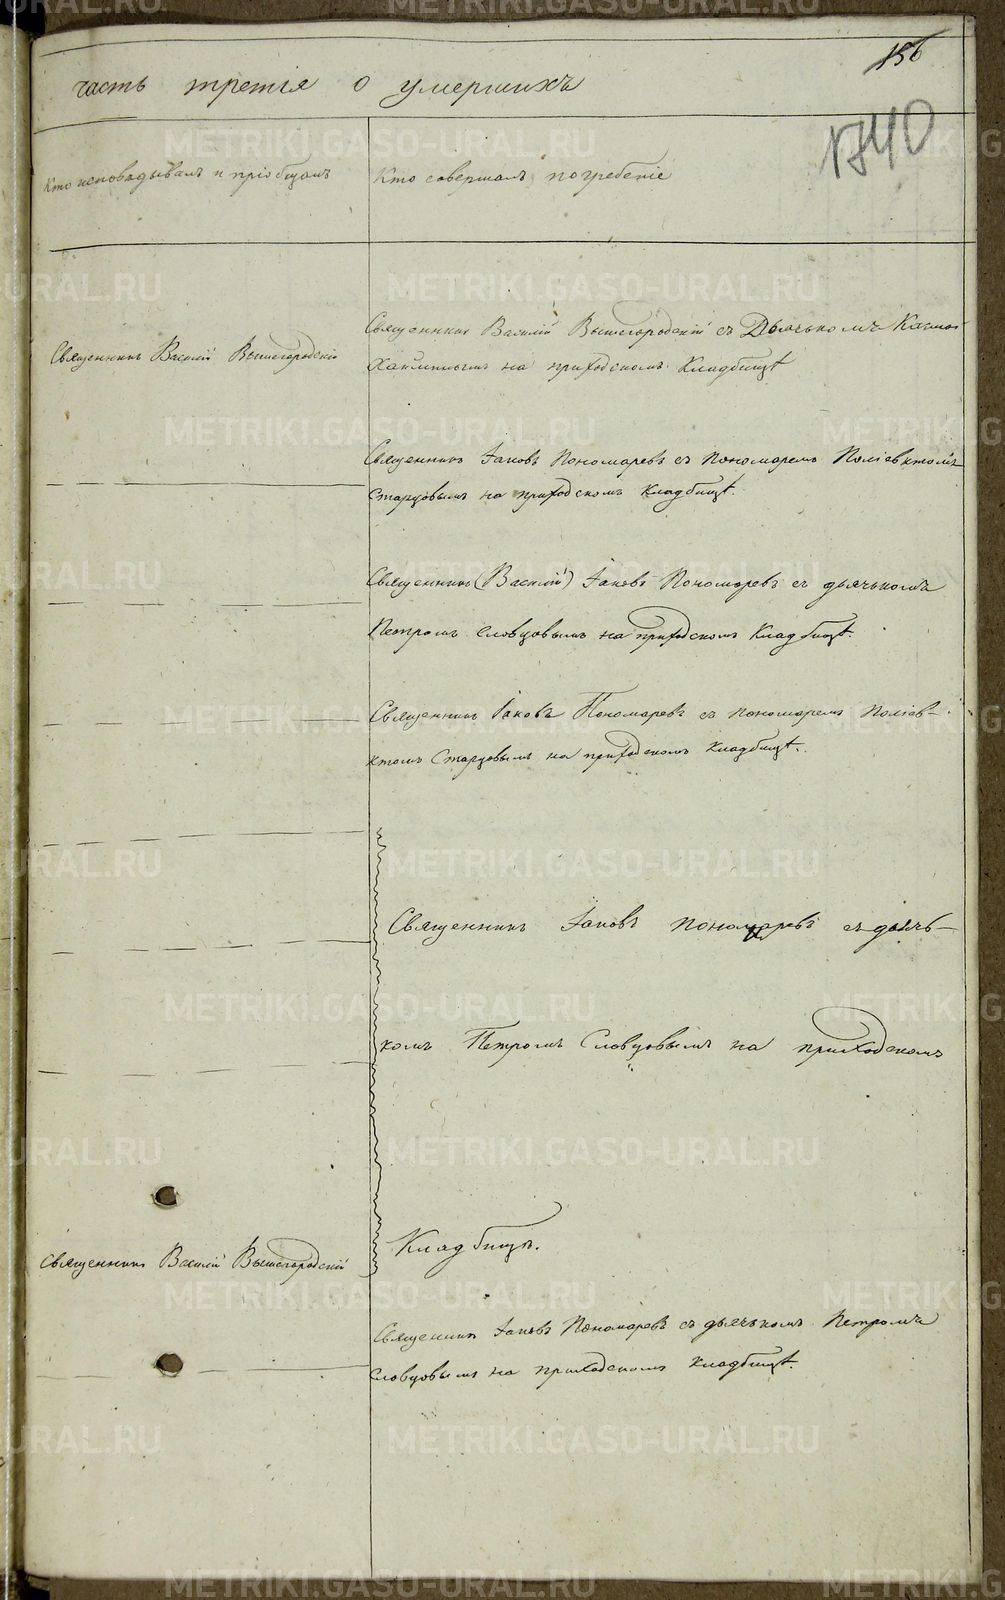 156
часть третія о умершихъ
1740
Кто исповѣдывалъ и пріобщалъ
Кто совершалъ погребеніе
Священникъ Василій Вышегородскій
Священникъ Василій Вышегородскій съ Дьячькомъ
на приходскомъ Кладбищѣ
Священникъ Іаковъ Пономаревъ съ Пономаремъ Поліевктомъ
Старцовымъ на приходскомъ Кладбищѣ.
Священникъ (Василій) Іаковъ Пономаревъ съ дьячькомъ
Петромъ Словцовымъ на приходскомъ Кладбищѣ.
Священникъ Іаковъ Пономаревъ съ пономаремъ Поліев-
ктомъ Старцовымъ на приходскомъ Кладбищѣ.
Священникъ Іаковъ Пономаревъ съ дьячь-
комъ Петромъ Словцовымъ на приходскомъ
Кладбищѣ.
Священникъ Василій Вышегородскій
Священникъ Іаковъ Пономаревъ съ дьячькомъ Петромъ
Словцовымъ на приходскомъ Кладбищѣ.
METRIKI.GASO-URAL.RU